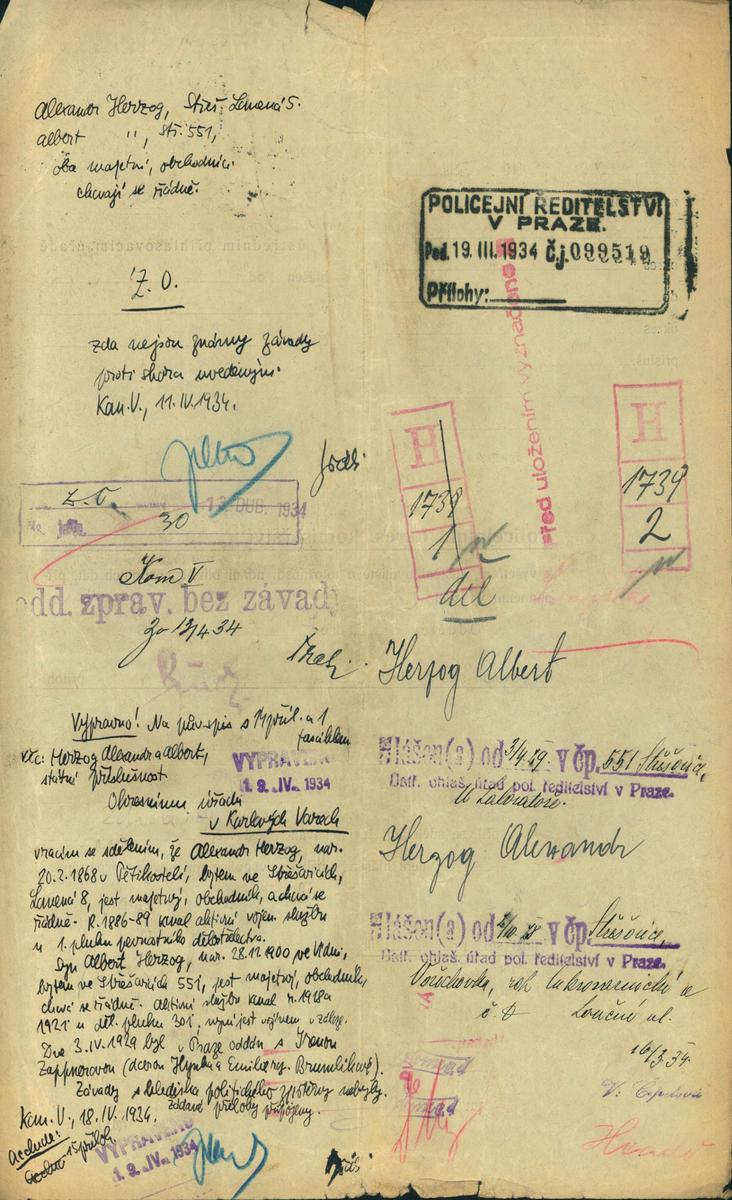 Alexandr Herzog, Stráš. Lomená 5.
Albert ", Stř. 551,
oba majetní, obchodníci
chovají se řádně.
Ž. O.
zda nejsou známy závady
proti shora uvedeným.
Kom. V., 11. IV. 1934.
Ž. O.
13. DUB. 1934
30
Kom V
odd. zprav. bez závad
12/4 34
Vypraveno! Na pův. spis s 14 příl. a 1
Věc: Herzog Alexandr a Albert,
státní příslušnost
VYPRAVENO
1 9. IV. 1934
Okresnímu úřadu
v Karlových Varech
vracím se sdělením, že Alexandr Herzog, nar.
20.2.1868 v Pětikostelí, bytem ve Střešovicích,
Lomená 8, jest majetný, obchodník, a chová se
řádně. R. 1886-89 konal aktivní vojen. službu
u 1. pluku pevnostního dělostřelectva.
Syn Albert Herzog, nar. 28.11.1900 ve Vídni,
bytem ve Střešovicích 551, jest majetný, obchodník,
chová se řádně. Aktivní službu konal r. 1918 a
1921 u děl. pluku 301, nyní jest vojínem v záloze.
Dne 3. IV. 1929 byl v Praze oddán s Irenou
Zappnerovou (dcerou Hynka a Emilie r. Brumlíkové).
Závady s hlediska politického zjištěny nebyly.
žádané přílohy připojeny.
Kom. V., 18. IV. 1934.
15 příloh
VYPRAVENO
1 9. IV. 1934
POLICEJNÍ ŘEDITELSTVÍ
V PRAZE.
Pod. 19. III. 1934 č.j. 099519
Přílohy:
před uložením vyznačeno
H
1738
1
H
1739
2
díl
Herzog Albert
Hlášen(a) od 3/4 29 v čp. 551 Střešovice,
Ústř. ohlaš. úřad pol. ředitelství v Praze.
U Laboratoře.
Herzog Alexandr
Hlášen(a) od v čp. Střešovice,
Ústř. ohlaš. úřad pol. ředitelství v Praze.
Ořechovka, roh Cukrovarnické a
Lomené ul.
16/3. 34.